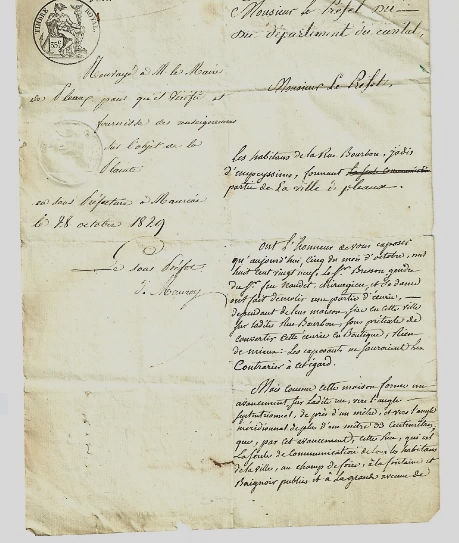 TIMBRE ROYAL
35c
Monsieur le Préfet du
du département du cantal,
Renvoyé à M. le Maire
de Pleaux pour qu'il vérifie et
fournisse des renseignemens
sur l'objet de la
Plainte
en sous Préfecture à Mauriac
le 28 octobre 1829
Le sous Préfet
Monsieur Le Préfet,
Les habitans de la Rue Bourbon, jadis
d'empeyssine, formant
partie de La ville de pleaux.
ont l'honneur de vous exposer
qu'aujourd'hui, cinq du mois d'octobre, mil
huit cent vingt neuf, le Sr. Besson gendre
du Sr. feu naudet chirurgien, et sa dame
ont fait demolir une partie d'écurie,
dependant de leur maison, sise en cette ville
sur ladite Rue Bourbon, sous prétexte de
convertir cette écurie en Boutique; Rien
de mieux: les exposants ne sauroient les
Contrarier à cet égard.
Mais comme cette maison forme un
avancement sur ladite rue, vers l'angle
septentrionnal, de près d'un mètre, et vers l'angle
méridionnal de plus d'un mètre 33 centimètres,
que, par cet avancement, cette Rue, qui est
La seule de communication de tous les habitans
de la ville, au champ de foire, à la fontaine et
Baignoir publics et à la grande avenue de